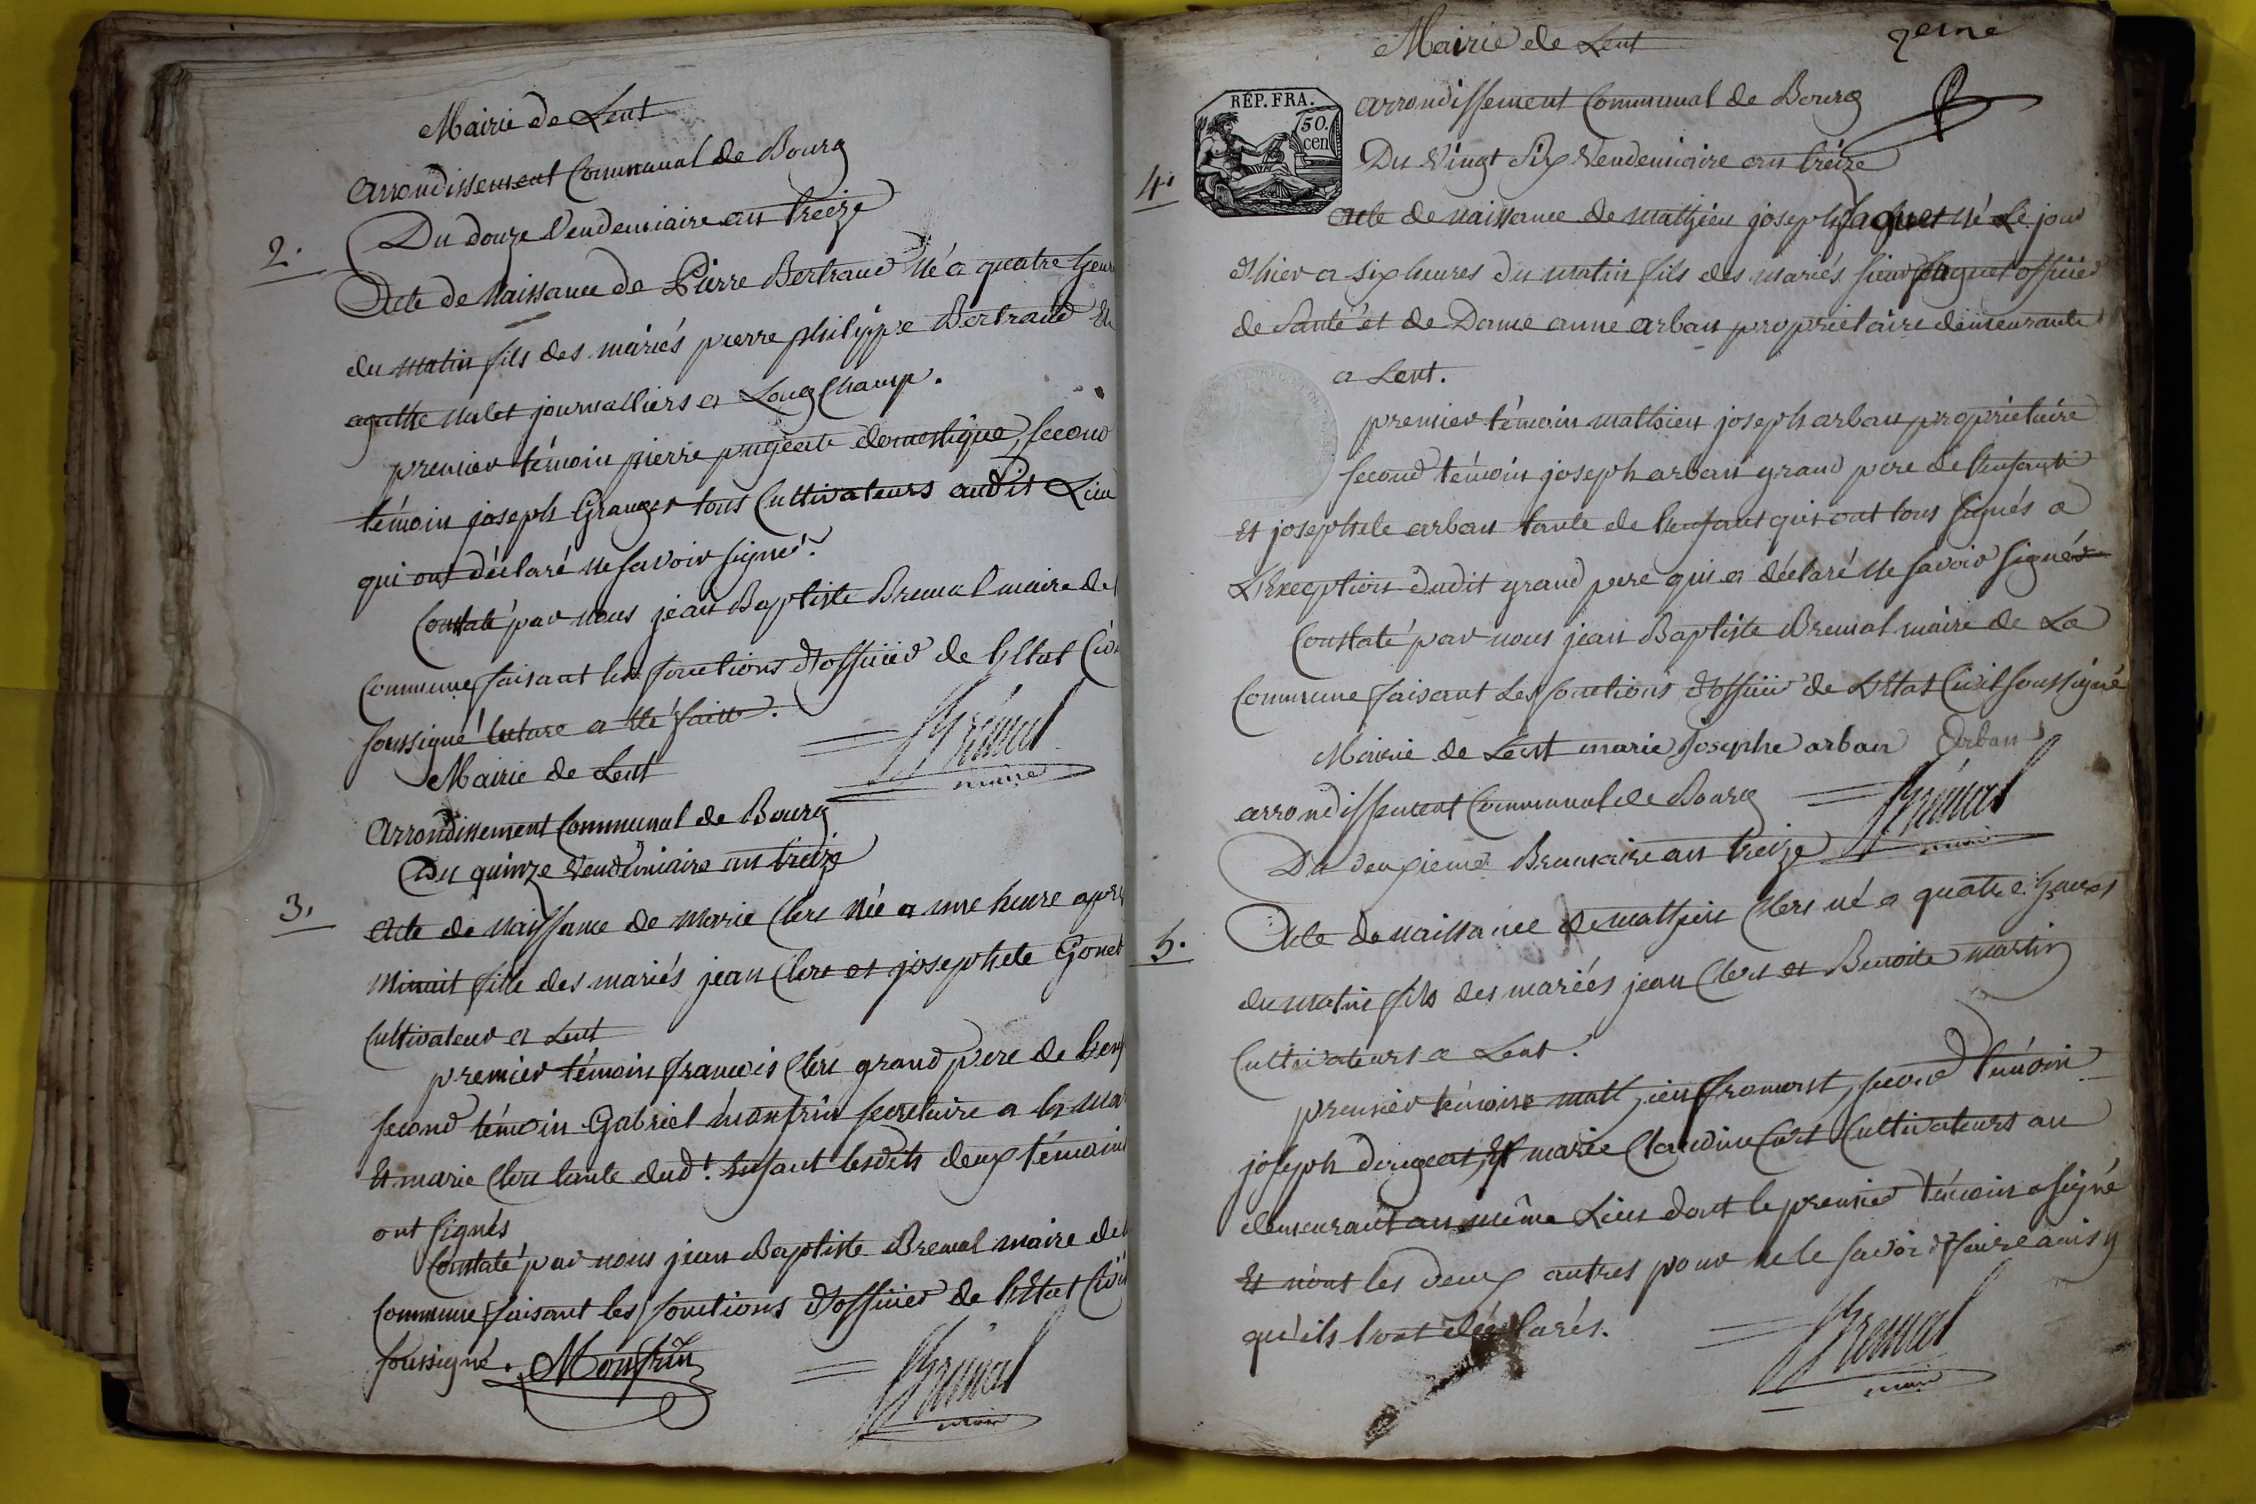 Mairie de Lent
arrondissement Communal de Bourg
Du douze Vendemiaire an treize
2.
Acte de Naissance de Pierre Bertrand né a quatre heur
du matin fils des mariés pierre philippe Bertrand Et
agathe journalliers a Longchamp.
premier témoin pierre domestique, second
témoin joseph Granger tous Cultivateurs audit Lieu
qui ont déclaré ne savoir signer.
Constaté par nous jean Baptiste Bremal maire de
Commune faisant les fonctions d'officier de l'Etat Civ
soussigné lecture a été faitte.
Brémal
maire
Mairie de Lent
Arrondissement Communal de Bourg
Du quinze Vendemiaire an treize
3.
Acte de Naissance de Marie Clerc Née a une heure apre
Minuit fille des mariés jean Clerc et josephete Gonet
Cultivateur a Lent
premier témoin françois Clerc grand pere de l'enf
second témoin Gabriel Monfrin secretaire a la Ma
Et marie Clerc tante dud.t Enfant lesdits deux témoins
ont signés
Constaté par nous jean Baptiste Bremal maire de
Commune faisant les fonctions d'officier de l'Etat Civi
soussigné. Monfrin
Brémal
maire
Mairie de Lent
2eme
REP. FRA.
50.
cen
arrondissement Communal de Bourg
Du Vingt Six Vendemiaire an treize
4.
acte de naissance de mathieu joseph jaquet né Le jour
d'hier a six heures du matin fils des mariés sieur jaquet officier
de Santé et de Dame anne arban proprietaire demeurante
a Lent.
premier témoin mathieu joseph arban proprietaire
second témoin joseph arban grand pere de l'enfant
Et josephete arban tante de l'enfant qui ont tous signés a
L'Exception dudit grand pere qui a déclaré ne savoir signer
Constaté par nous jean Baptiste Bremal maire de La
Commune faisant Les fonctions d'officier de L'Etat Civil soussigné
Mairie de Lent marie josephe arban Arban
arrondissement Communal de Bourg
Brémal
maire
Du deuxieme Brumaire an treize
5.
Acte de naissance de mathieu Clerc né a quatre heures
du matin fils des mariés jean Clerc et Benoite martin
Cultivateurs a Lent.
premier témoin mathieu fromont, second témoin
joseph Et marie Claudine Cultivateurs au
demeurant au même Lieu dont le premier témoin a signé
Et nont les deux autres pour ne le savoir faire ainsy
qu'ils l'ont déclarés.
Bremal
maire